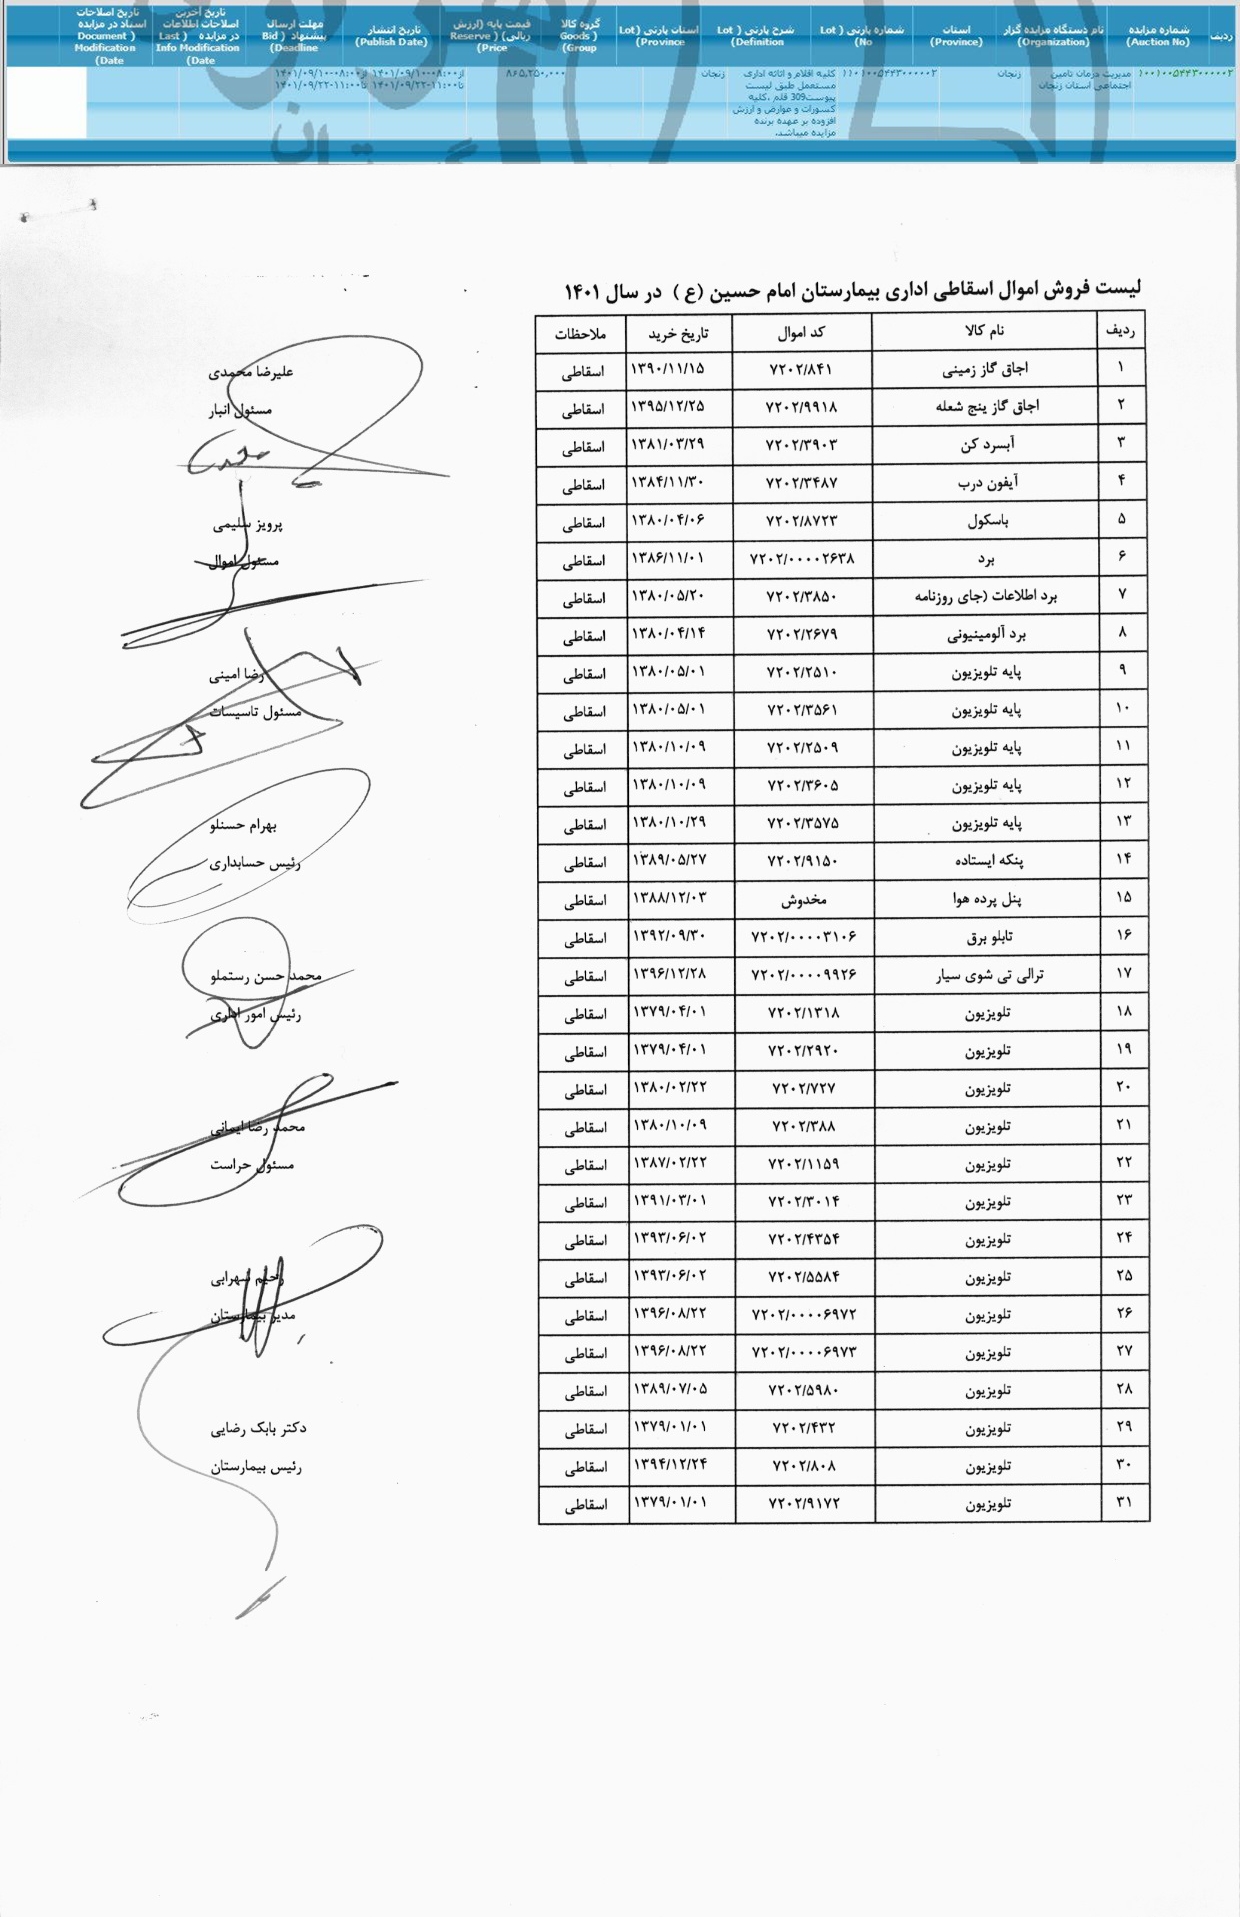 ردیف
شماره مزایده (Auction No)
نام دستگاه مزایده گزار (Organization)
استان (Province)
شماره پارتی (Lot No)
شرح پارتی (Lot Definition)
استان پارتی (Lot Province)
گروه کالا (Goods Group)
قیمت پایه (ارزش ریالی) (Reserve Price)
تاریخ انتشار (Publish Date)
مهلت ارسال پیشنهاد (Bid Deadline)
تاریخ آخرین اصلاحات اطلاعات در مزایده (Last Info Modification Date)
تاریخ اصلاحات اسناد در مزایده (Document Modification Date)
مدیریت درمان تامین اجتماعی استان زنجان
زنجان
کلیه اقلام و اثاثه اداری
مستعمل طبق لیست
پیوست309 قلم .کلیه
کسورات و عوارض و ارزش
افزوده بر عهده برنده
مزایده میباشد.
زنجان
۸۶۵,۲۵۰,۰۰۰
از۰۸:۰۰-۱۴۰۱/۰۹/۱۰ تا۱۱:۰۰-۱۴۰۱/۰۹/۲۲
از۰۸:۰۰-۱۴۰۱/۰۹/۱۰ تا۱۱:۰۰-۱۴۰۱/۰۹/۲۲
لیست فروش اموال اسقاطی اداری بیمارستان امام حسین (ع ) در سال ۱۴۰۱
ردیف نام کالا کد اموال تاریخ خرید ملاحظات
۱ اجاق گاز زمینی ۷۲۰۲/۸۴۱ ۱۳۹۰/۱۱/۱۵ اسقاطی
۲ اجاق گاز پنج شعله ۷۲۰۲/۹۹۱۸ ۱۳۹۵/۱۲/۲۵ اسقاطی
۳ آبسرد کن ۷۲۰۲/۳۹۰۳ ۱۳۸۱/۰۳/۲۹ اسقاطی
۴ آیفون درب ۷۲۰۲/۳۴۸۷ ۱۳۸۴/۱۱/۳۰ اسقاطی
۵ باسکول ۷۲۰۲/۸۷۲۳ ۱۳۸۰/۰۴/۰۶ اسقاطی
۶ برد ۷۲۰۲/۰۰۰۰۲۶۳۸ ۱۳۸۶/۱۱/۰۱ اسقاطی
۷ برد اطلاعات (جای روزنامه ۷۲۰۲/۳۸۵۰ ۱۳۸۰/۰۵/۲۰ اسقاطی
۸ برد آلومینیونی ۷۲۰۲/۲۶۷۹ ۱۳۸۰/۰۴/۱۴ اسقاطی
۹ پایه تلویزیون ۷۲۰۲/۲۵۱۰ ۱۳۸۰/۰۵/۰۱ اسقاطی
۱۰ پایه تلویزیون ۷۲۰۲/۳۵۶۱ ۱۳۸۰/۰۵/۰۱ اسقاطی
۱۱ پایه تلویزیون ۷۲۰۲/۲۵۰۹ ۱۳۸۰/۱۰/۰۹ اسقاطی
۱۲ پایه تلویزیون ۷۲۰۲/۳۶۰۵ ۱۳۸۰/۱۰/۰۹ اسقاطی
۱۳ پایه تلویزیون ۷۲۰۲/۳۵۷۵ ۱۳۸۰/۱۰/۲۹ اسقاطی
۱۴ پنکه ایستاده ۷۲۰۲/۹۱۵۰ ۱۳۸۹/۰۵/۲۷ اسقاطی
۱۵ پنل پرده هوا مخدوش ۱۳۸۸/۱۲/۰۳ اسقاطی
۱۶ تابلو برق ۷۲۰۲/۰۰۰۰۳۱۰۶ ۱۳۹۲/۰۹/۳۰ اسقاطی
۱۷ ترالی تی شوی سیار ۷۲۰۲/۰۰۰۰۹۹۲۶ ۱۳۹۶/۱۲/۲۸ اسقاطی
۱۸ تلویزیون ۷۲۰۲/۱۳۱۸ ۱۳۷۹/۰۴/۰۱ اسقاطی
۱۹ تلویزیون ۷۲۰۲/۲۹۲۰ ۱۳۷۹/۰۴/۰۱ اسقاطی
۲۰ تلویزیون ۷۲۰۲/۷۲۷ ۱۳۸۰/۰۲/۲۲ اسقاطی
۲۱ تلویزیون ۷۲۰۲/۳۸۸ ۱۳۸۰/۱۰/۰۹ اسقاطی
۲۲ تلویزیون ۷۲۰۲/۱۱۵۹ ۱۳۸۷/۰۲/۲۲ اسقاطی
۲۳ تلویزیون ۷۲۰۲/۳۰۱۴ ۱۳۹۱/۰۳/۰۱ اسقاطی
۲۴ تلویزیون ۷۲۰۲/۴۳۵۴ ۱۳۹۳/۰۶/۰۲ اسقاطی
۲۵ تلویزیون ۷۲۰۲/۵۵۸۴ ۱۳۹۳/۰۶/۰۲ اسقاطی
۲۶ تلویزیون ۷۲۰۲/۰۰۰۰۶۹۷۲ ۱۳۹۶/۰۸/۲۲ اسقاطی
۲۷ تلویزیون ۷۲۰۲/۰۰۰۰۶۹۷۳ ۱۳۹۶/۰۸/۲۲ اسقاطی
۲۸ تلویزیون ۷۲۰۲/۵۹۸۰ ۱۳۸۹/۰۷/۰۵ اسقاطی
۲۹ تلویزیون ۷۲۰۲/۴۳۲ ۱۳۷۹/۰۱/۰۱ اسقاطی
۳۰ تلویزیون ۷۲۰۲/۸۰۸ ۱۳۹۴/۱۲/۲۴ اسقاطی
۳۱ تلویزیون ۷۲۰۲/۹۱۷۲ ۱۳۷۹/۰۱/۰۱ اسقاطی
علیرضا محمدی
مسئول انبار
پرویز سلیمی
مسئول اموال
رضا امینی
مسئول تاسیسات
بهرام حسنلو
رئیس حسابداری
محمد حسن رستملو
رئیس امور اداری
محمد رضا ایمانی
مسئول حراست
رحیم سهرابی
مدیر بیمارستان
دکتر بابک رضایی
رئیس بیمارستان